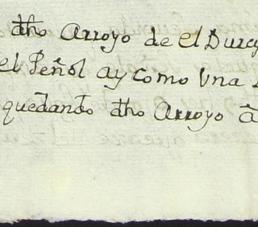 dho Arroyo de el Durç
el Peñol ay como Una
quedando dho Arroyo â